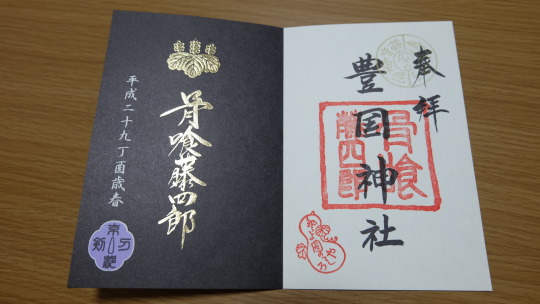 奉拝
豊国神社
骨喰
藤四郎
骨喰藤四郎
平成二十九丁酉歳春